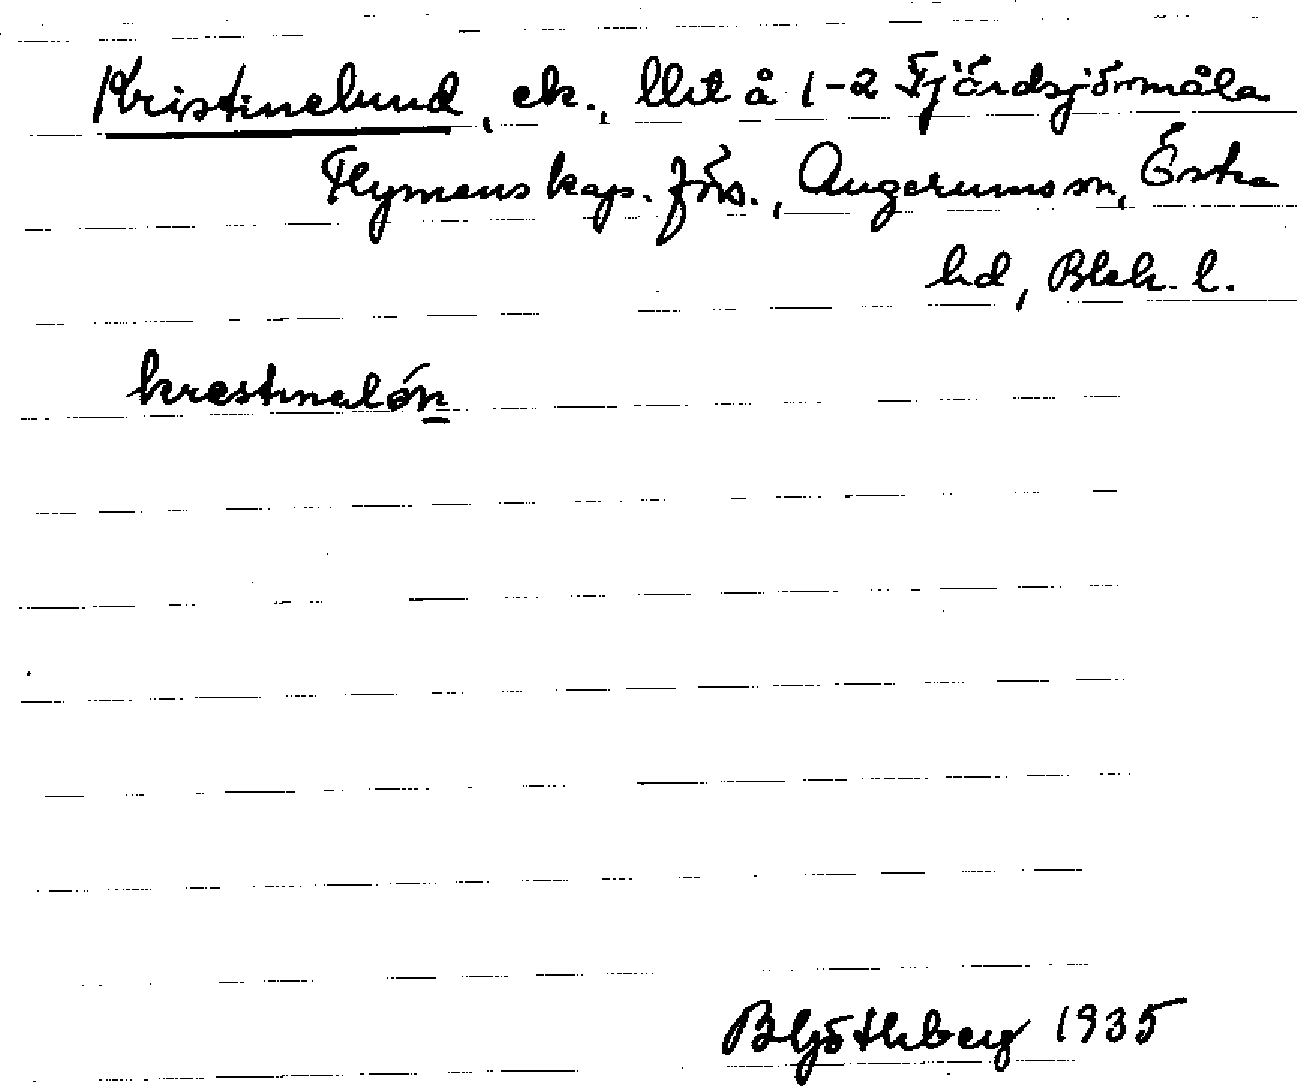 Kristinelund, ek., llht å 1-2 Fjärdsjömåla
Flymens kap. förs., Augerums sn, Östra
hd, Blek. l.
krestinalón
B Ljöthberg 1935